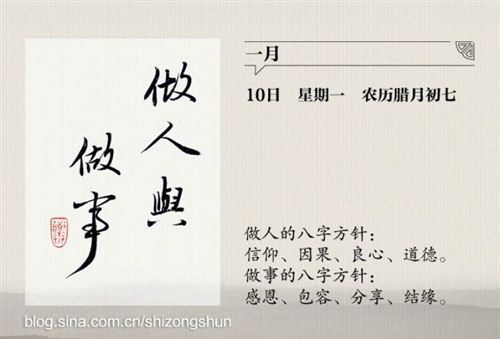 做人與
做事
一月
10日 星期一 农历腊月初七
做人的八字方针：
信仰、因果、良心、道德。
做事的八字方针：
感恩、包容、分享、结缘。
blog.sina.com.cn/shizongshun